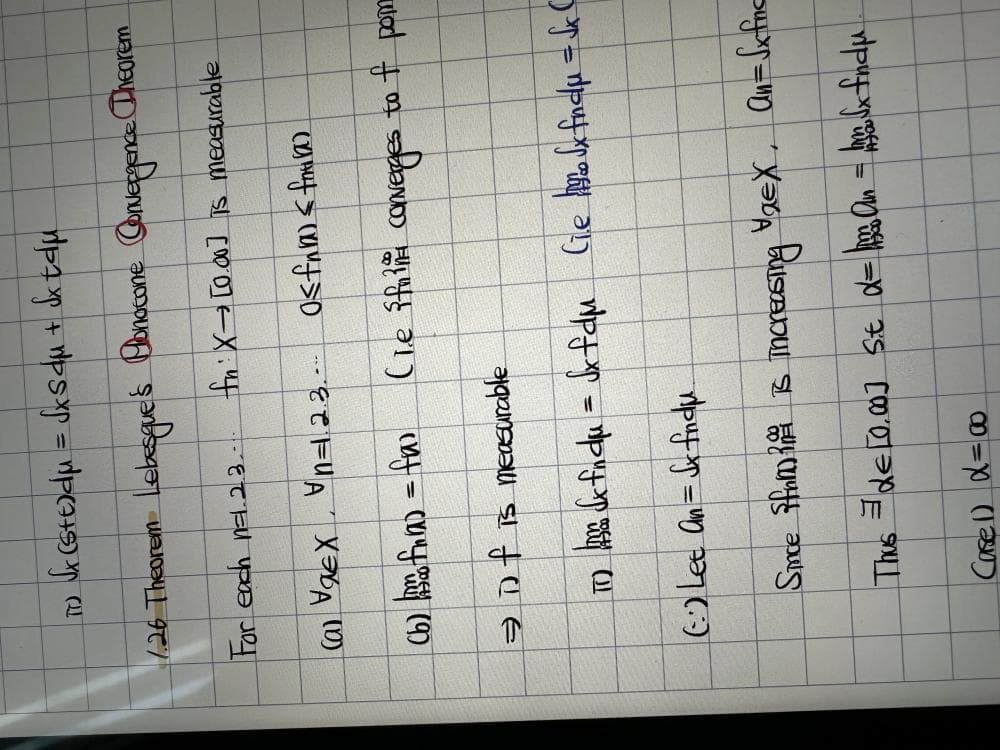 ii) ∫x(s+t)dμ = ∫x s dμ + ∫x t dμ
1.26 Theorem Lebesgue's Monotone Convergence Theorem
For each n=1.2.3.... fn : X → [0.∞] is measurable
(a) ∀x∈X, ∀n=1.2.3.... 0≤fn(x)≤fn+1(x)
(b) lim n→∞ fn(x) = f(x) (i.e {fn}∞n=1 converges to f
⇒ i) f is measurable
ii) lim n→∞ ∫x fn dμ = ∫x f dμ (i.e lim n→∞ ∫x fn dμ = ∫x
(∵) Let an = ∫x fn dμ
Since {fn(x)}∞n=1 is increasing ∀x∈X, an = ∫x fn
Thus ∃ α∈[0.∞] s.t α = lim n→∞ an = lim n→∞ ∫x fn dμ.
Case1) α=∞